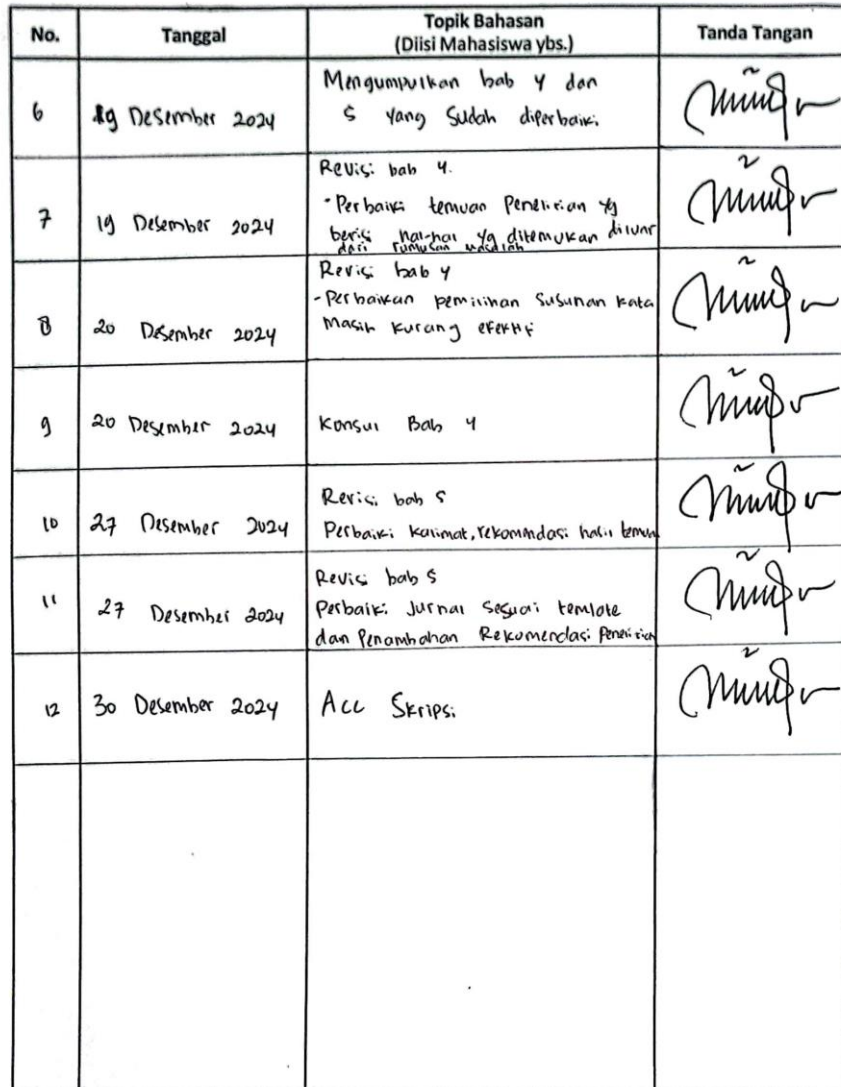 No.
Tanggal
Topik Bahasan
(Diisi Mahasiswa ybs.)
Tanda Tangan
6
19 Desember 2024
Mengumpulkan bab 4 dan
5 yang Sudah diperbaiki
7
19 Desember 2024
Revisi bab 4.
- Perbaiki temuan Penelitian yg
berisi hal-hal yg ditemukan diluar
dari rumusan masalah
8
20 Desember 2024
Revisi bab 4
- Perbaikan pemilihan Susunan kata
Masih kurang efektif
9
20 Desember 2024
Konsul Bab 4
10
27 Desember 2024
Revisi bab 5
Perbaiki kalimat, rekomendasi hasil temun
11
27 Desember 2024
Revisi bab 5
Perbaiki Jurnal Sesuai temlate
dan Penambahan Rekomendasi Penelitian
12
30 Desember 2024
Acc Skripsi